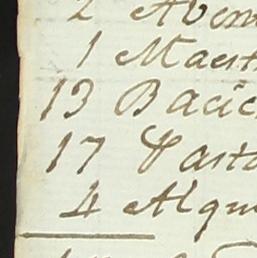 2 Abon
1 Maest
13 Bacic
17 Pasto
4 Alqu